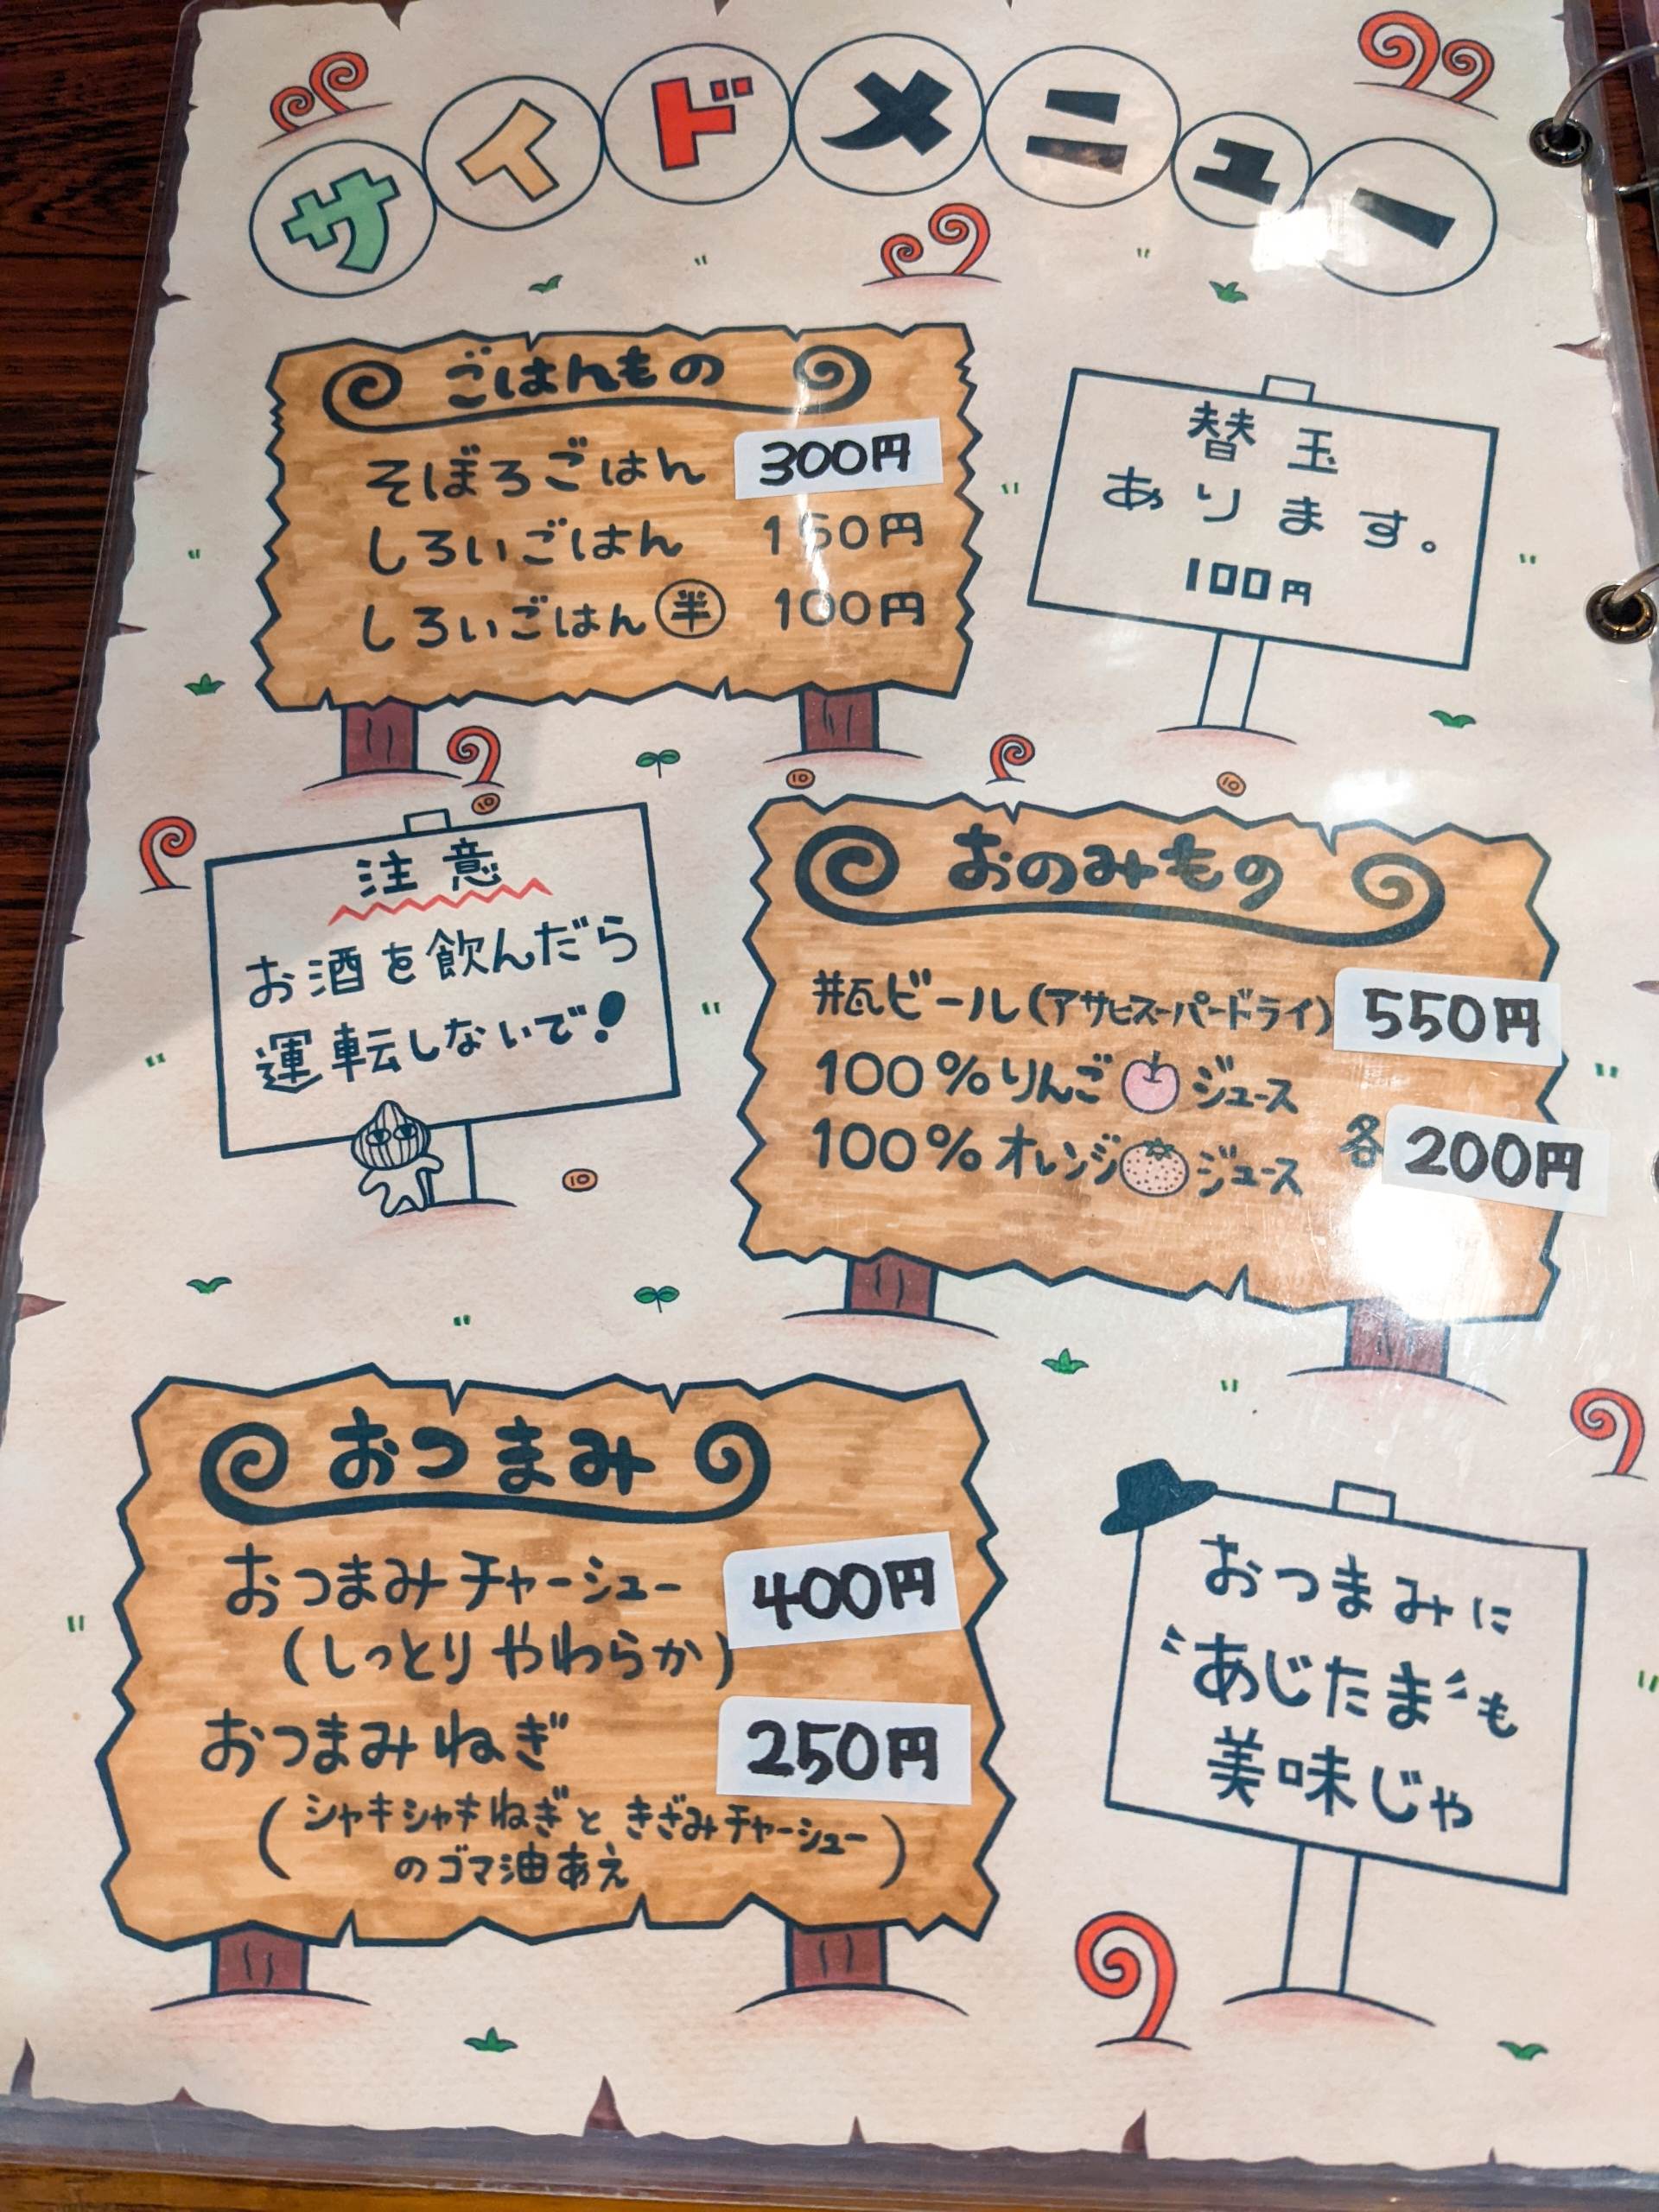 サイドメニュー
ごはんもの
そぼろごはん 300円
しろいごはん 150円
しろいごはん 半 100円
替玉
あります。
100円
注意
お酒を飲んだら
運転しないで!
おのみもの
瓶ビール(アサヒスーパードライ) 550円
100%りんごジュース
100%オレンジジュース 各200円
おつまみ
おつまみチャーシュー 400円
(しっとりやわらか)
おつまみねぎ 250円
(シャキシャキねぎときざみチャーシュー
のゴマ油あえ)
おつまみに
"あじたま"も
美味じゃ
10
10
10
10